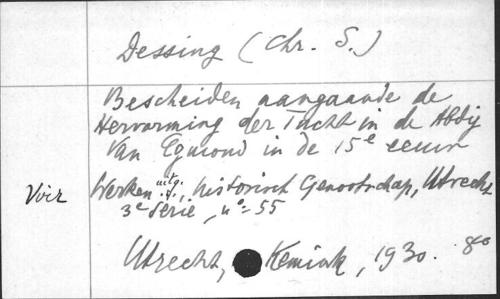 Dessing (Chr. S.)
Bescheiden aangaande de
Hervorming der Tucht in de Abdij
Van Egmond in de 15e eeuw
Voir Werken uitg. d. historisch Genootschap, Utrecht
3e Serie, no 55
Utrecht, Kemink, 1930. 8o